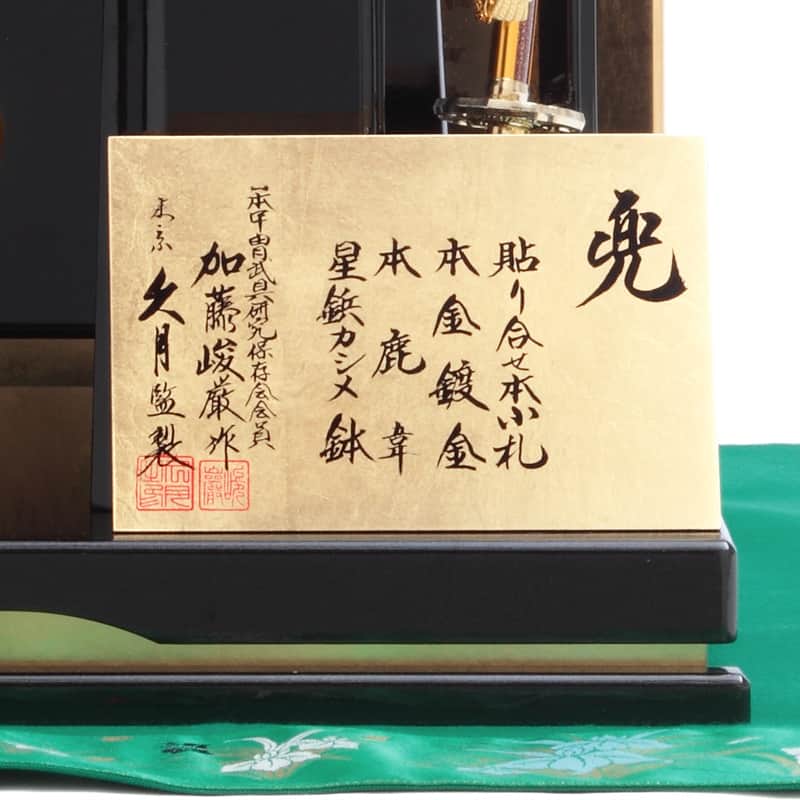 兜
貼り合せ本小札
本金鍍金
本鹿韋
星鋲カシメ鉢
日本甲冑武具研究保存会会員
加藤峻厳作
東京 久月監製